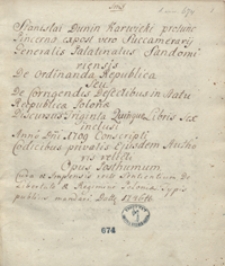 Stanislai Dunin Karwicki protunc
Pincerna, expost vero Succamerarij
Generalis Palatinatus Sandomi
riensis
De Ordinanda Republica
Seu
De Corrigendis Defectibus in Statu
Reipublicæ Polonæ
Discursus Triginta Quinque Libris Sex
inclusi
Anno Dni 1709 Conscripti
Codicibus privatis Ejusdem Autho
ris relicti
Opus Posthumum
Cura et Impensis
Libertate et Regimine Poloniæ Typis
publicis mandari
674